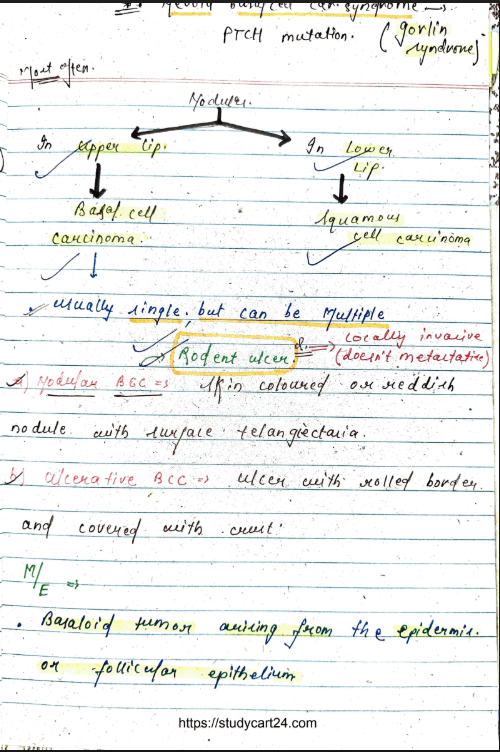 Nevoid basal cell car. syndrome →
PTCH mutation. (gorlin syndrone)
Most often.
Nodular.
In upper lip. In Lower
Lip.
Basal cell Squamous
carcinoma. cell carcinoma
usually single, but can be Multiple
Rodent ulcer. → Locally invasive
(doesn't metastatise)
a) Nodular BCC => skin coloured or reddish
nodule with surface telangiectaria.
b) ulcerative BCC => ulcer with rolled border
and covered with crust.
M/E =>
. Basaloid tumor arising from the epidermis.
or follicular epithelium
https://studycart24.com